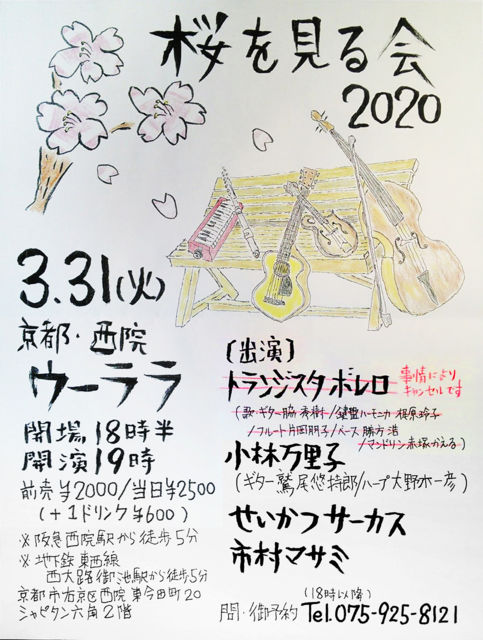 桜を見る会
2020
3.31(火)
京都・西院
ウーララ
開場18時半
開演19時
前売¥2000/当日¥2500
(+1ドリンク¥600)
※阪急西院駅から徒歩5分
※地下鉄東西線
西大路御池駅から徒歩5分
京都市右京区西院東今田町20
シャピタン六角2階
〔出演〕
トランジスタボレロ
事情により
キャンセルです
(歌・ギター脇秀樹/鍵盤ハーモニカ梶原玲子
/フルート片岡朋子/ベース勝方浩
/マンドリン赤塚かえる)
小林万里子
(ギター鷲尾悠持郎/ハープ大野木一彦)
せいかつサーカス
市村マサミ
(18時以降)
問・御予約 Tel.075-925-8121